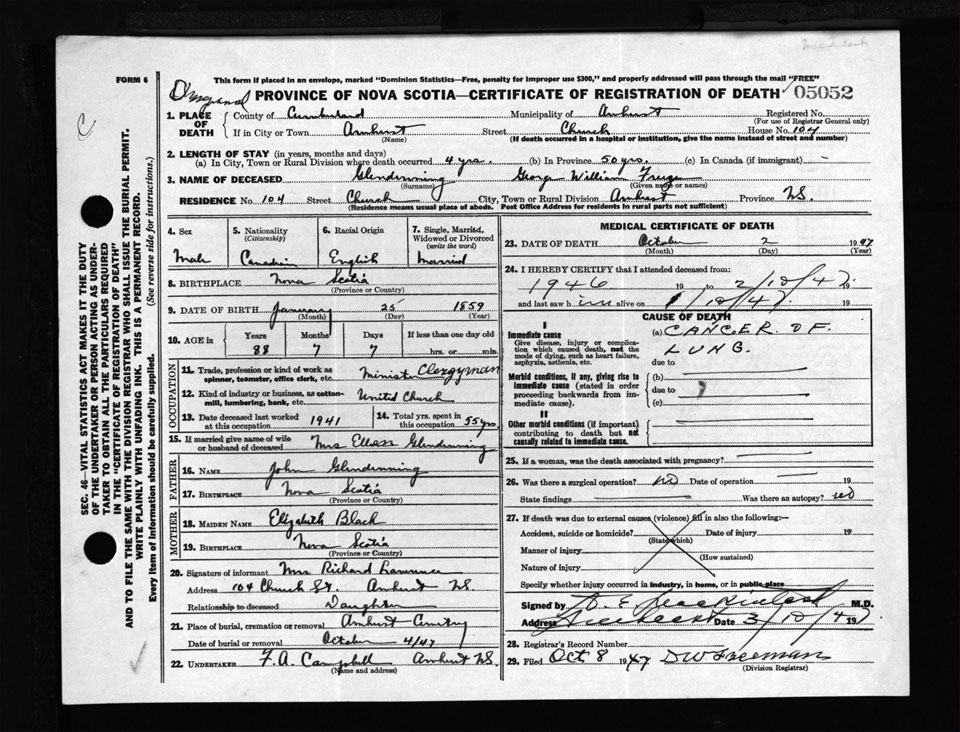 FORM 6
This form if placed in an envelope, marked "Dominion Statistics—Free, penalty for improper use $300," and properly addressed will pass through the mail "FREE"
PROVINCE OF NOVA SCOTIA—CERTIFICATE OF REGISTRATION OF DEATH 05052
1. PLACE OF DEATH
County of Cumberland Municipality of Amherst Registered No.
(For use of Registrar General only)
If in City or Town Amherst Street Church House No. 104
(Name) (If death occurred in a hospital or institution, give the name instead of street and number)
2. LENGTH OF STAY (in years, months and days)
(a) In City, Town or Rural Division where death occurred 4 yrs. (b) In Province 50 yrs. (c) In Canada (if immigrant) —
3. NAME OF DECEASED Glendenning George William
(Surname) (Given name or names)
RESIDENCE No. 104 Street Church City, Town or Rural Division Amherst Province N.S.
(Residence means usual place of abode. Post Office Address for residents in rural parts not sufficient)
4. Sex Male
5. Nationality (Citizenship) Canadian
6. Racial Origin English
7. Single, Married, Widowed or Divorced (write the word) Married
8. BIRTHPLACE Nova Scotia
(Province or Country)
9. DATE OF BIRTH January 25 1859
(Month) (Day) (Year)
10. AGE in Years Months Days If less than one day old
88 7 7 hrs. or min.
OCCUPATION
11. Trade, profession or kind of work as spinner, teamster, office clerk, etc. Minister Clergyman
12. Kind of industry or business, as cotton-mill, lumbering, bank, etc. United Church
13. Date deceased last worked at this occupation 1941
14. Total yrs. spent in this occupation 55 yrs.
15. If married give name of wife or husband of deceased Mrs Ellen Glendenning
FATHER
16. NAME John Glendenning
17. BIRTHPLACE Nova Scotia
(Province or Country)
MOTHER
18. MAIDEN NAME Elizabeth Black
19. BIRTHPLACE Nova Scotia
(Province or Country)
20. Signature of informant Mrs Richard Lawrence
Address 104 Church St. Amherst N.S.
Relationship to deceased Daughter
21. Place of burial, cremation or removal Amherst Cemetry
Date of burial or removal October 4/47
22. UNDERTAKER F. A. Campbell Amherst N.S.
(Name and address)
MEDICAL CERTIFICATE OF DEATH
23. DATE OF DEATH October 2 1947
(Month) (Day)
24. I HEREBY CERTIFY that I attended deceased from:
1946 19 to 2/10/47. 19
and last saw him alive on 1/10/47 19
CAUSE OF DEATH
I
Immediate cause
Give disease, injury or complication which caused death, not the mode of dying, such as heart failure, asphyxia, asthenia, etc.
(a) CANCER OF
LUNG.
due to
Morbid conditions, if any, giving rise to immediate cause (stated in order proceeding backwards from immediate cause).
(b)
due to
(c)
II
Other morbid conditions (if important) contributing to death but not causally related to immediate cause.
25. If a woman, was the death associated with pregnancy?
26. Was there a surgical operation? no Date of operation 19
State findings Was there an autopsy? no
27. If death was due to external causes (violence) fill in also the following:-
Accident, suicide or homicide? Date of injury 19
(State which)
Manner of injury
(How sustained)
Nature of injury
Specify whether injury occurred in industry, in home, or in public place
Signed by M.D.
Address Amherst Date 3/10/47 19
28. Registrar's Record Number
29. Filed Oct 8 1947 DW Freeman
(Division Registrar)
SEC. 46—VITAL STATISTICS ACT MAKES IT THE DUTY
OF THE UNDERTAKER OR PERSON ACTING AS UNDER-
TAKER TO OBTAIN ALL THE PARTICULARS REQUIRED
IN THE "CERTIFICATE OF REGISTRATION OF DEATH"
AND TO FILE THE SAME WITH THE DIVISION REGISTRAR WHO SHALL ISSUE THE BURIAL PERMIT.
WRITE PLAINLY WITH UNFADING INK. THIS IS A PERMANENT RECORD.
Every item of information should be carefully supplied. (See reverse side for instructions.)
C